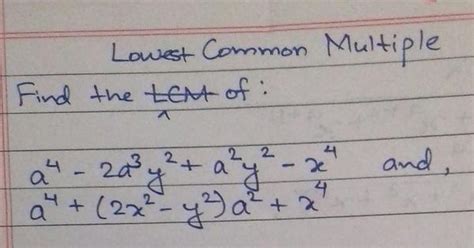 Lowest Common Multiple
Find the LCM of :
a⁴ - 2a³y² + a²y² - x⁴ and,
a⁴ + (2x² - y²)a² + x⁴